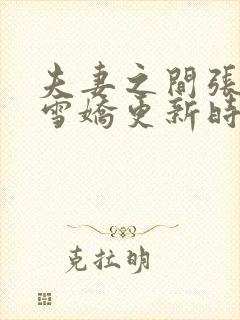 夫妻之間張
雪嬌更新時
克拉明